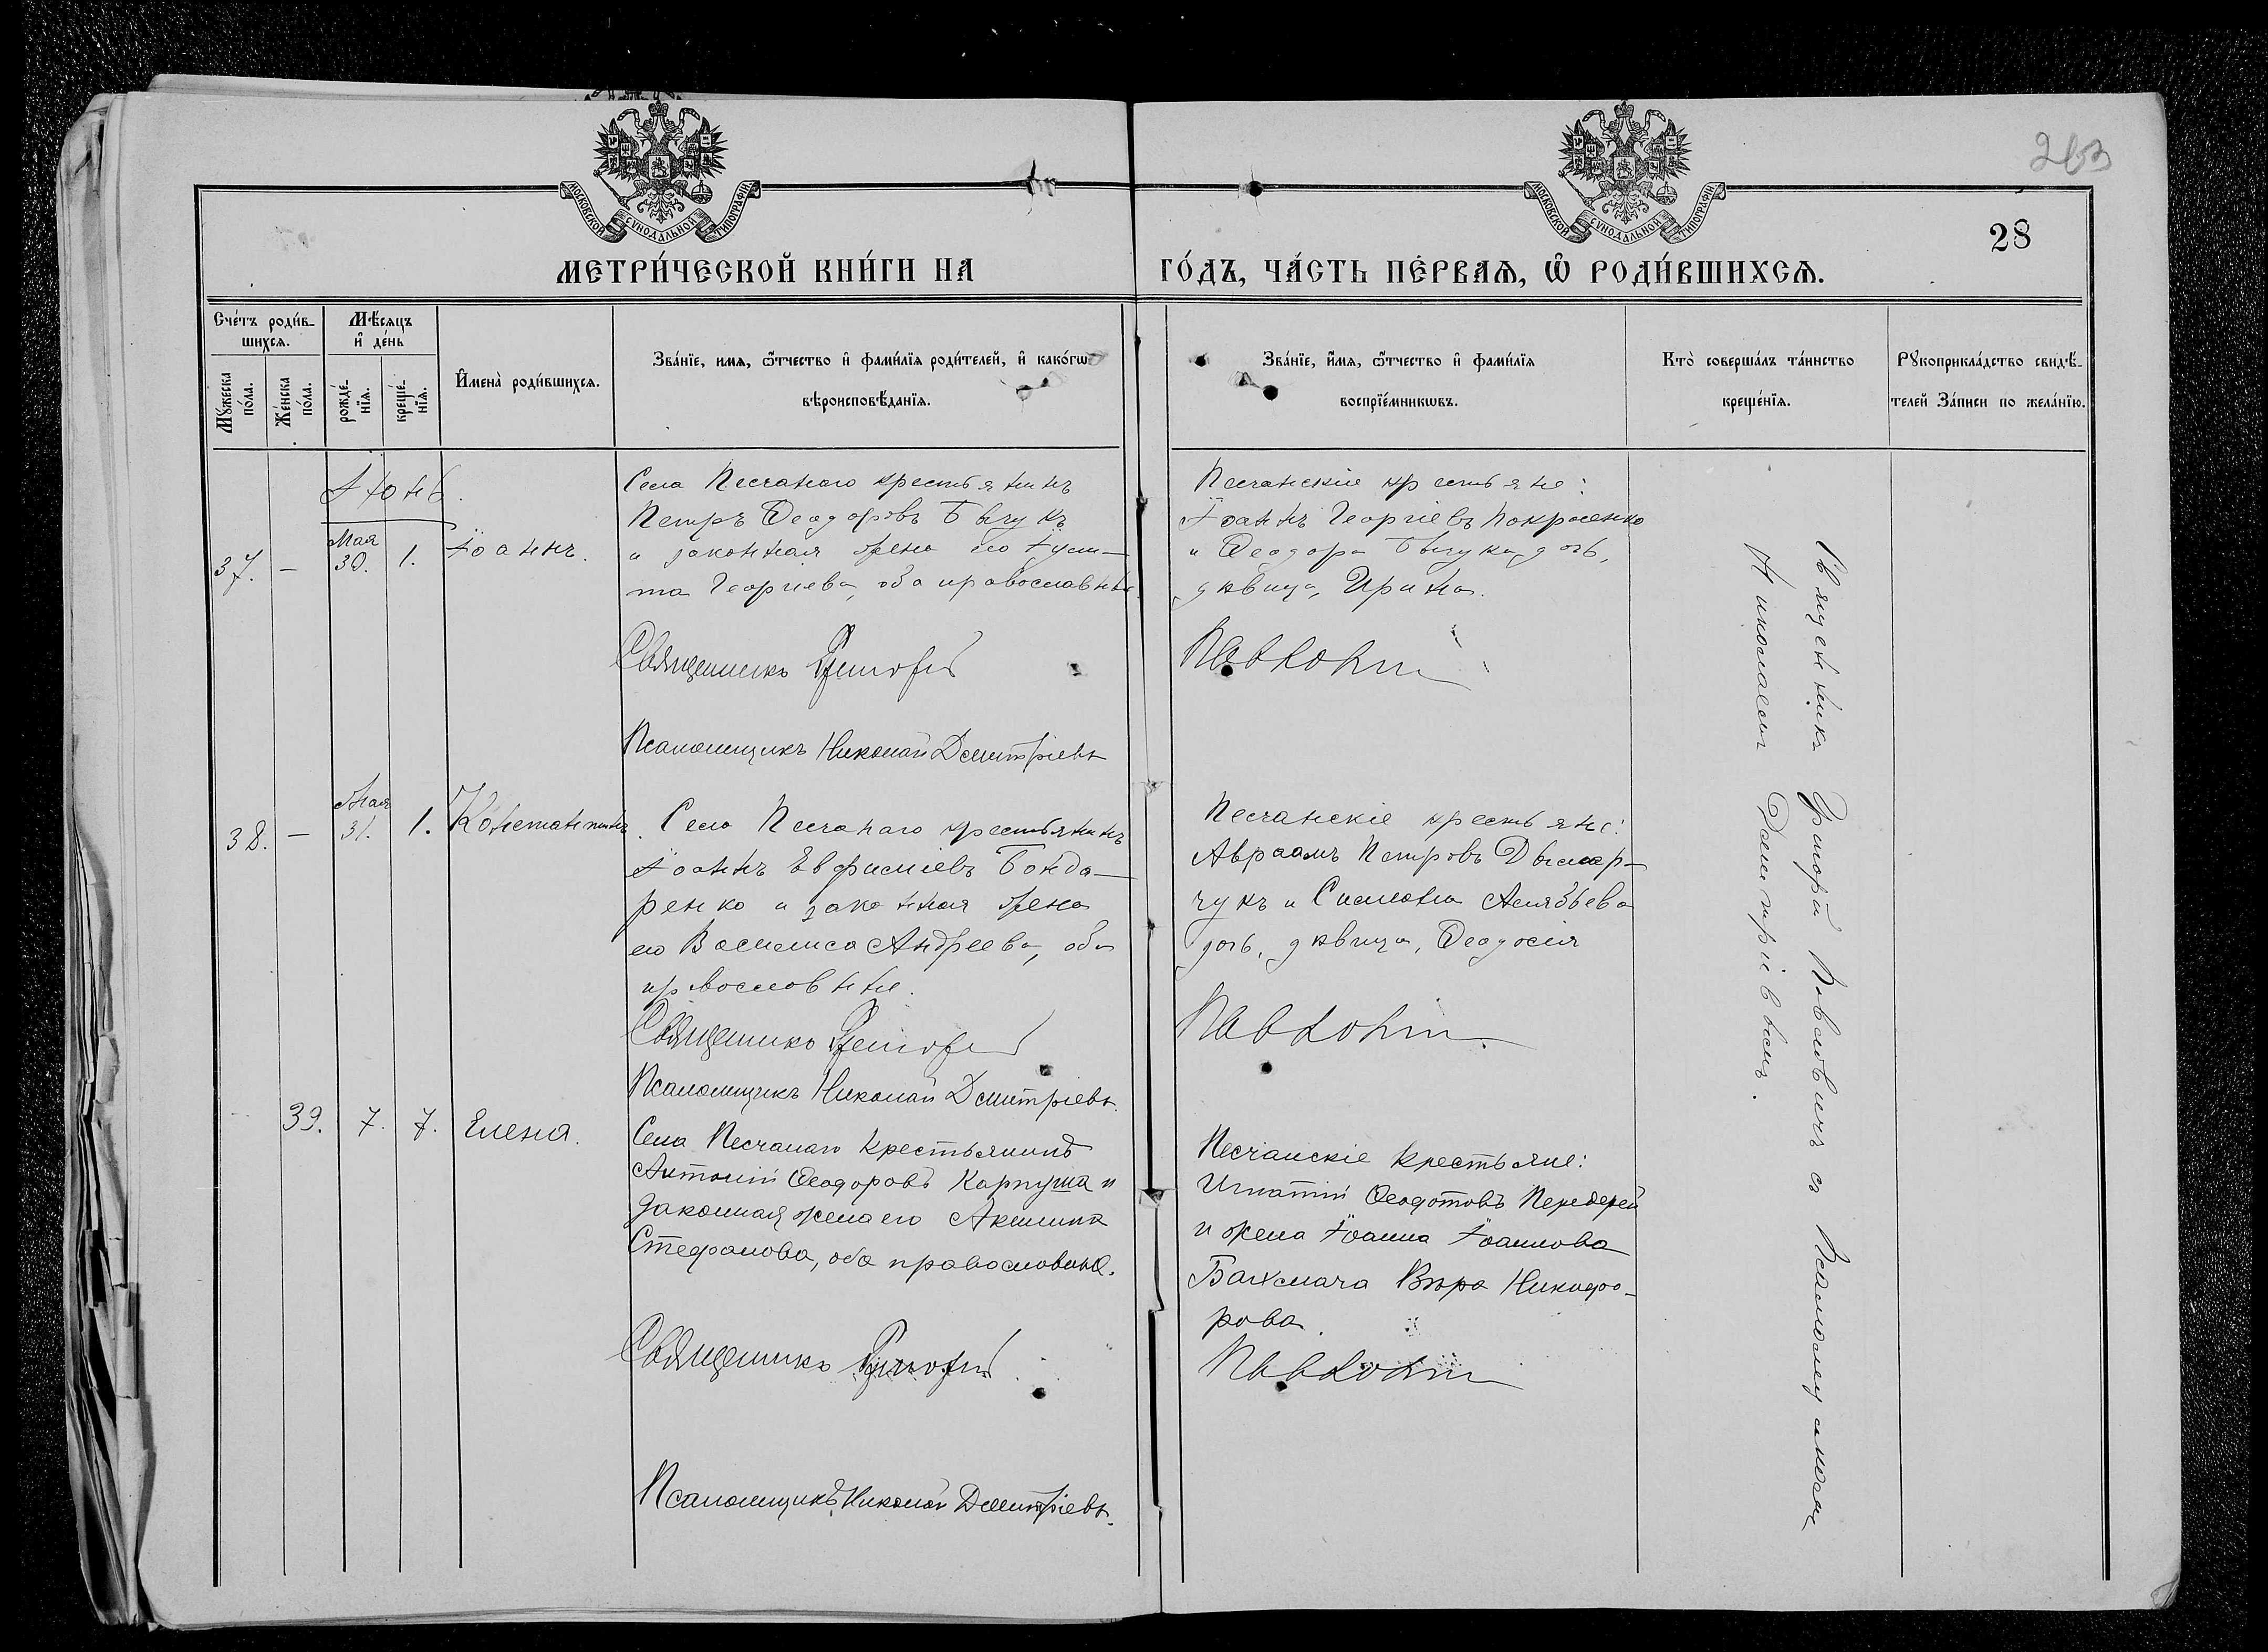 МОСКОВСКОЙ СѴНОДАЛЬНОЙ ТИПОГРАФІИ
МОСКОВСКОЙ СѴНОДАЛЬНОЙ ТИПОГРАФІИ
263
28
МЕТРИ́ЧЕСКОЙ КНИ́ГИ НА ГО́ДЪ, ЧА́СТЬ ПЕ́РВАѦ, Ѿ РОДИ́ВШИХСѦ.
Сче́тъ роди́в-
шихсѧ.
Мꙋжеска по́ла.
Же́нска по́ла.
Мѣ́сѧцъ
и҆ де́нь
рожде́-
нїѧ.
креще́-
нїѧ.
И҆мена̀ роди́вшихсѧ.
Зва́нїе, имѧ, ѻ҆́тчество и҆ фами́лїѧ роди́телей, и҆ како́гѡ
вѣроисповѣ́данїѧ.
Зва́нїе, и҆́мѧ, ѻ҆́тчество и҆ фами́лїѧ
воспрїе́мникѡвъ.
Кто̀ соверша́лъ та́инство
креще́нїѧ.
Рꙋкоприкла́дство свидѣ́-
телей За́писи по жела́нїю.
Іюнь.
37. — Мая 30. 1. Іоаннъ.
Села Песчанаго крестьянинъ
Петръ Ѳеодоровъ Бычукъ
и законная жена его Іули-
та Георгіева, оба православные
Священникъ Григорій
Псаломщикъ Николай Дмитріевъ
Песчанскіе крестьяне:
Іоаннъ Георгіевъ
и Ѳеодора Бычука дочь,
дѣвица, Ирина.
Павловичъ
38. — Мая 31. 1. Константинъ.
Села Песчанаго крестьянинъ
Іоаннъ Евфиміевъ Бонда-
ренко и законная жена
его Василиса Андреева, оба
православные.
Священникъ Григорій
Псаломщикъ Николай Дмитріевъ.
Песчанскіе крестьяне:
Авраамъ Петровъ Дымар-
чукъ и Симеона Алябьева
дочь, дѣвица, Ѳеодосія
Павловичъ.
39. 7. 7. Елена.
Села Песчанаго крестьянинъ
Антоній Ѳеодоровъ Карпуша и
законная жена его Акилина
Стефанова, оба православные.
Священникъ Григорій
Псаломщикъ Николай Дмитріевъ.
Песчанскіе крестьяне:
Игнатій Ѳеодотовъ Передерей
и жена Іоанна Іоаннова
Бахмача Вѣра Никифо-
рова.
Павловичъ
Священникъ Григорій Павловичъ съ Псаломщикомъ
Николаемъ Дмитріевымъ.